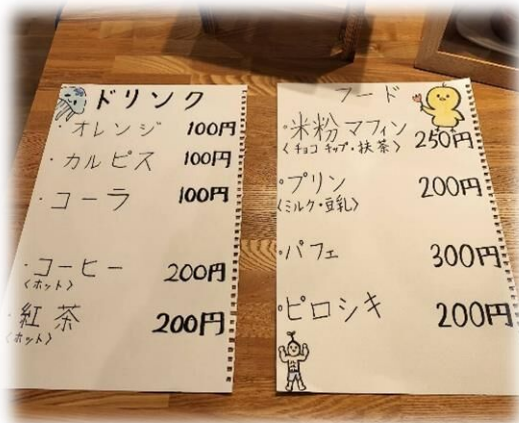 ドリンク
・オレンジ 100円
・カルピス 100円
・コーラ 100円
・コーヒー 200円
〈ホット〉
・紅茶 200円
〈ホット〉
フード
・米粉マフィン 250円
〈チョコチップ・抹茶〉
・プリン 200円
〈ミルク・豆乳〉
・パフェ 300円
・ピロシキ 200円